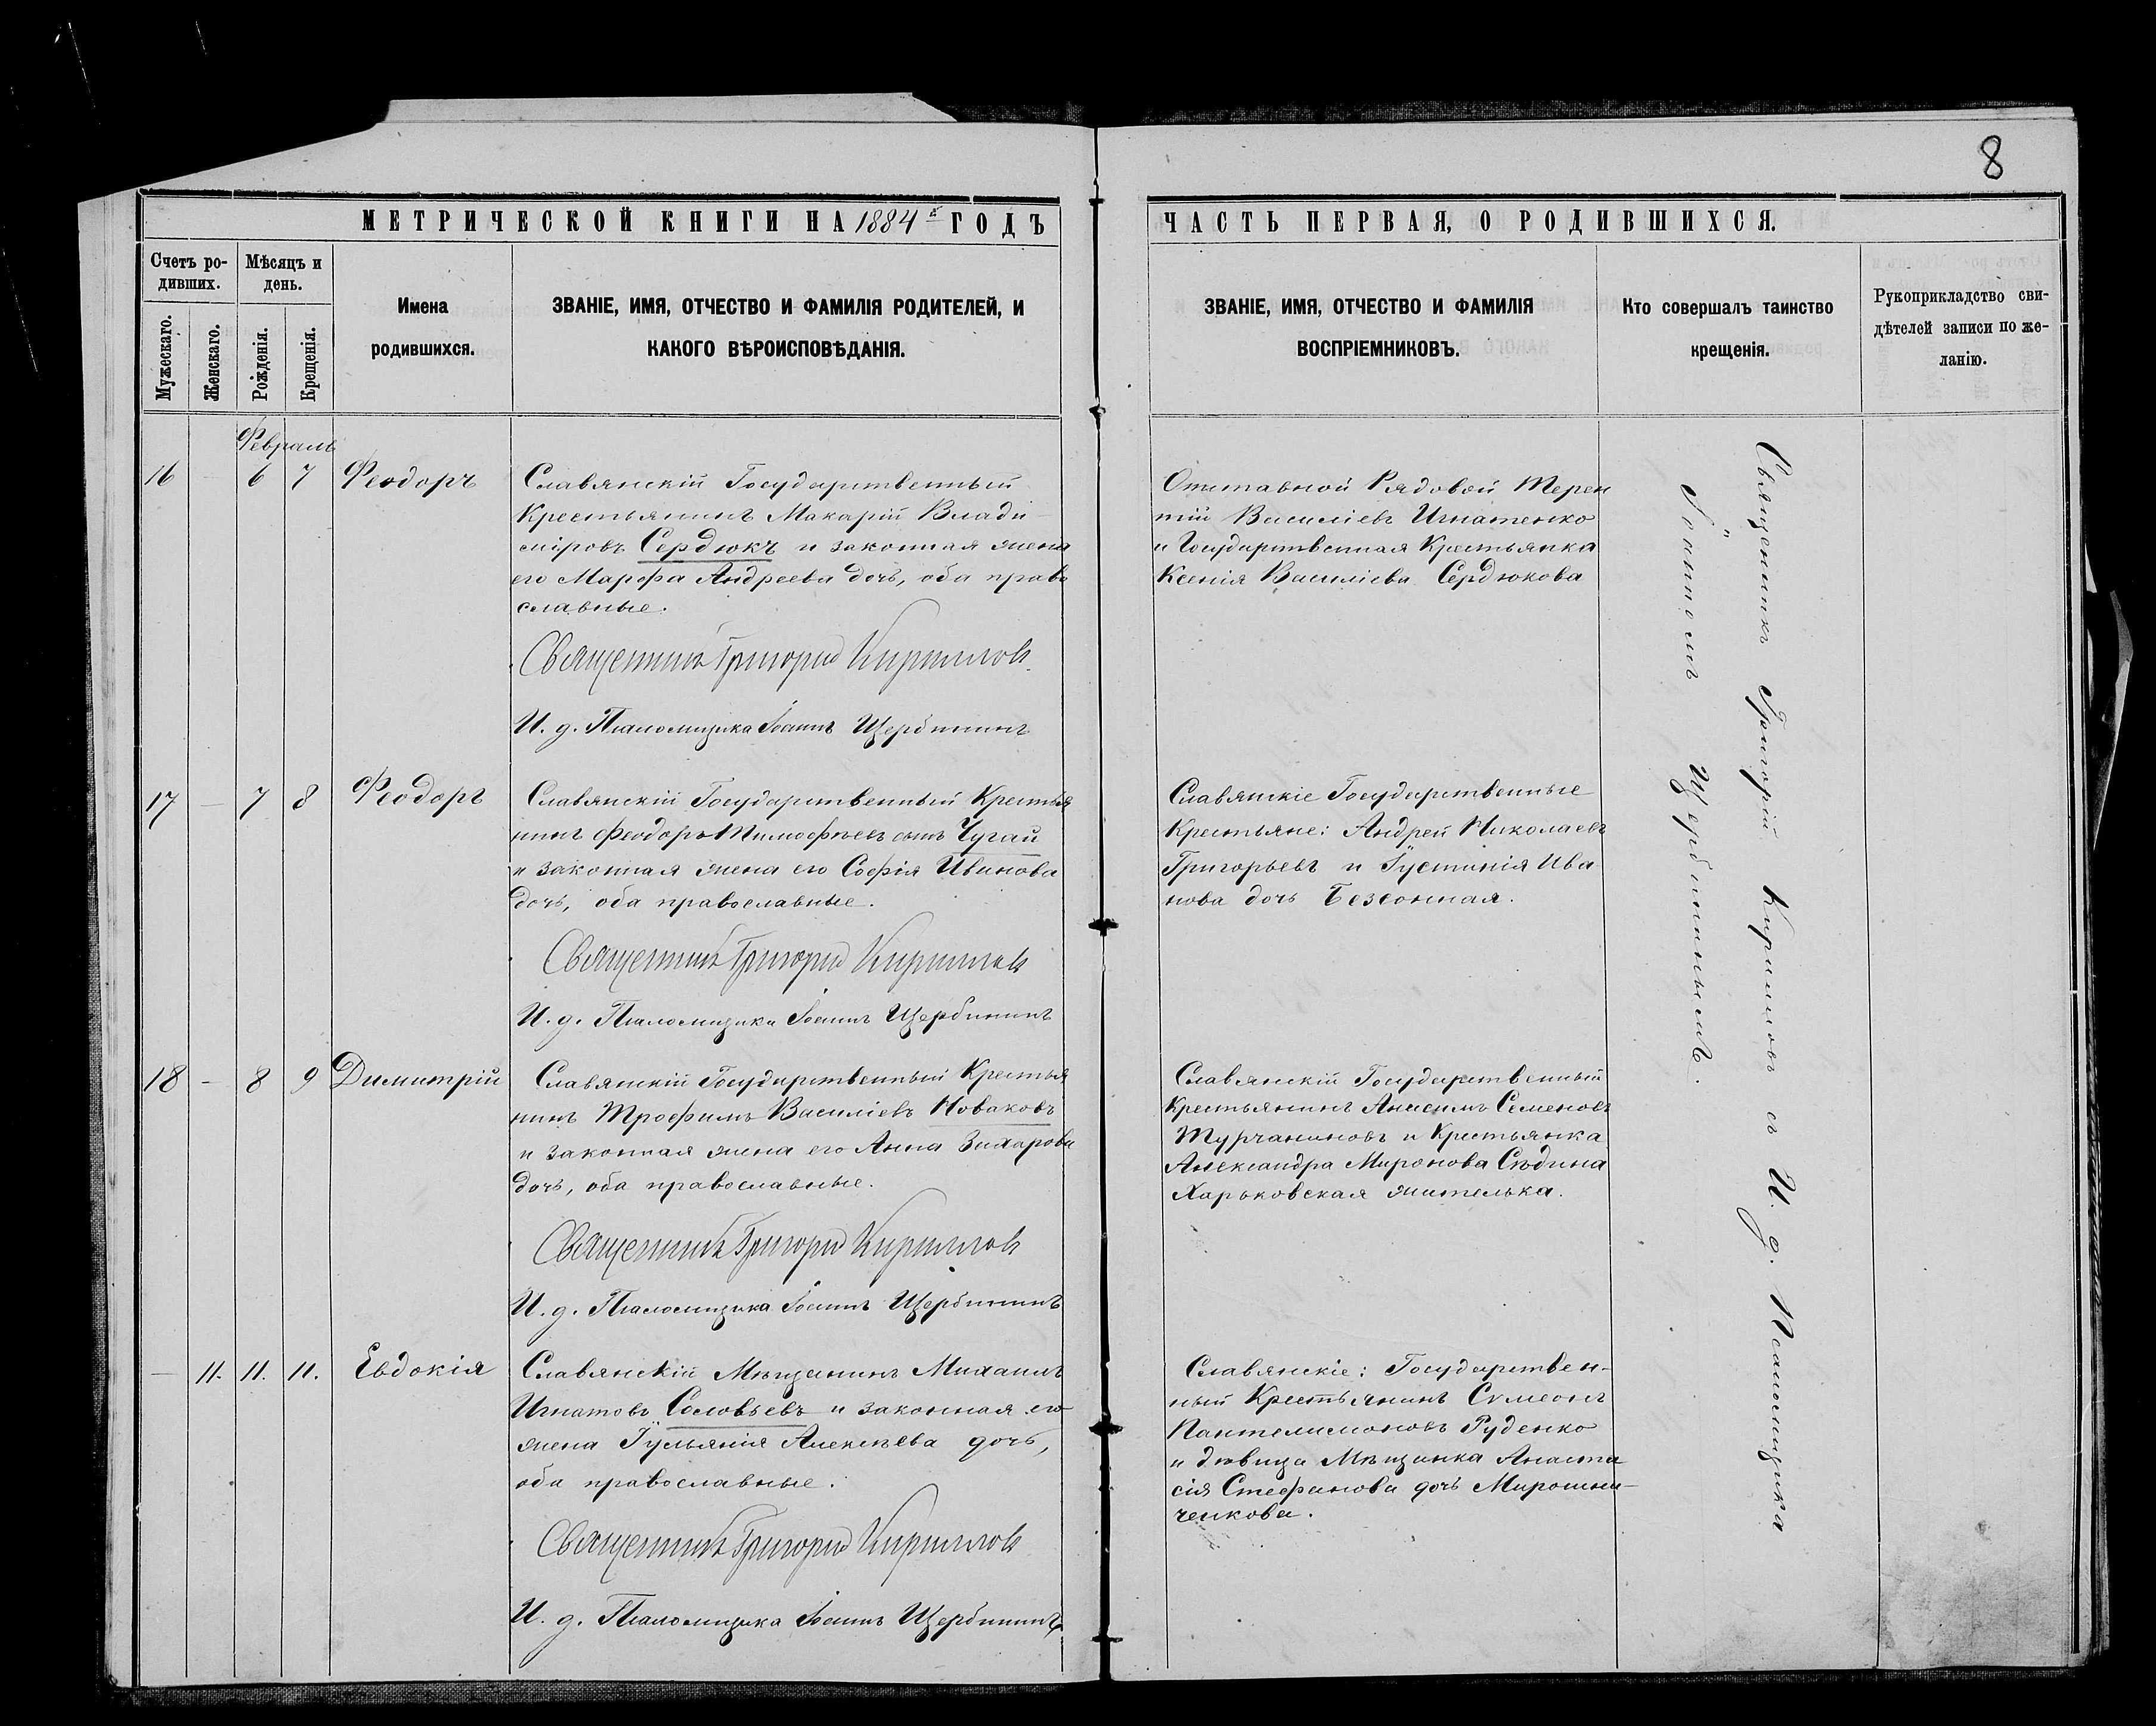 8
МЕТРИЧЕСКОЙ КНИГИ НА 1884й ГОДЪ
ЧАСТЬ ПЕРВАЯ, О РОДИВШИХСЯ.
Счетъ ро-
дившихъ.
Мужескаго.
Женскаго.
Мѣсяцъ и
день.
Рожденія.
Крещенія.
Имена
родившихся.
ЗВАНІЕ, ИМЯ, ОТЧЕСТВО И ФАМИЛІЯ РОДИТЕЛЕЙ, И
КАКОГО ВѢРОИСПОВѢДАНІЯ.
ЗВАНІЕ, ИМЯ, ОТЧЕСТВО И ФАМИЛІЯ
ВОСПРІЕМНИКОВЪ.
Кто совершалъ таинство
крещенія.
Рукоприкладство сви-
дѣтелей записи по же-
ланію.
Февраль
16 - 6 7 Ѳеодоръ
Славянскій Государственный
Крестьянинъ Макарій Влади-
міровъ Сердюкъ и законная жена
его Марфа Андреева дочь, оба право
славные.
Священникъ Григорій Кириллов
И. д. Псаломщика Іоаннъ Щербининъ
Отставной Рядовой Терен
тій Василіевъ Игнатенко
и Государственная Крестьянка
Ксенія Василіева Сердюкова
17 - 7 8 Ѳеодоръ
Славянскій Государственный Крестья
нинъ Феодоръ Тимофѣевъ сынъ Чугай
и законная жена его Софія Иванова
дочь, оба православные.
Священникъ Григорій Кириллов
И. д. Псаломщика Іоаннъ Щербининъ
Славянскіе Государственные
Крестьяне: Андрей Николаевъ
Григорьевъ и Іустинія Ива
нова дочь Безсонная.
18 - 8 9 Димитрій
Славянскій Государственный Крестья
нинъ Трофимъ Василіевъ Новаковъ
и законная жена его Анна Захарова
дочь, оба православные.
Священникъ Григорій Кириллов
И. д. Псаломщика Іоаннъ Щербининъ
Славянскій Государственный
Крестьянинъ Анисимъ Семеновъ
Турчаниновъ и Крестьянка
Александра Миронова Сѣдина
Харьковская жителька.
- 11. 11. 11. Евдокія
Славянскій Мѣщанинъ Михаилъ
Игнатовъ Соловьевъ и законная его
жена Іульянія Алексѣева дочь,
оба православные.
Священникъ Григорій Кириллов
И. д. Псаломщика Іоаннъ Щербининъ
Славянскіе: Государствен-
ный Крестьянинъ Сѵмеонъ
Пантелимоновъ Руденко
и дѣвица Мѣщанка Анаста
сія Стефанова дочь Мирошни-
ченкова.
Священникъ Григорій Кирилловъ съ И. д. Псаломщика
Іоанномъ Щербининымъ.